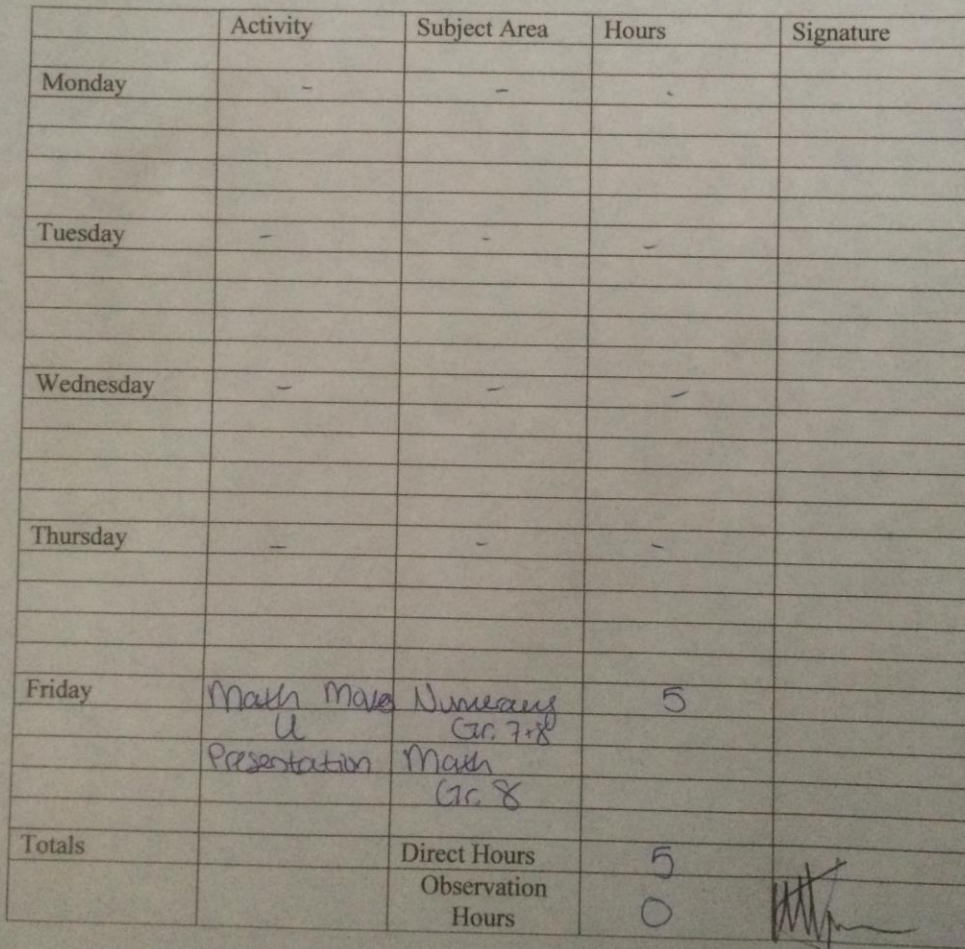 Activity Subject Area Hours Signature
Monday - - -
Tuesday - - -
Wednesday - - -
Thursday - - -
Friday Math Moves Numeracy 5
U Gr. 7+8
Presentation Math
Gr. 8
Totals Direct Hours 5
Observation
Hours 0